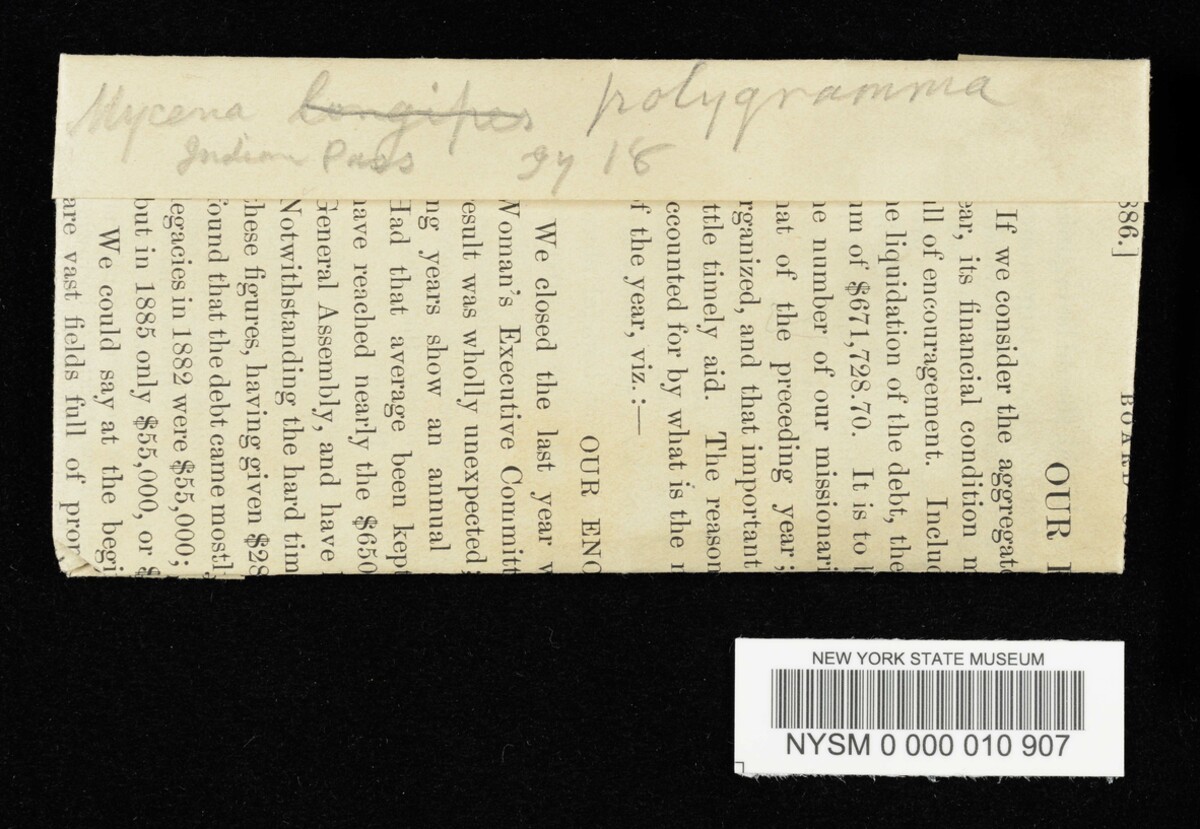 Mycena longipes polygramma
Indian Pass Jy 18
886.]
BOARD
OUR
If we consider the aggregat
ear, its financial condition
ll of encouragement. Inclu
e liquidation of the debt, the
um of $671,728.70. It is to
e number of our missionari
hat of the preceding year;
rganized, and that important
ttle timely aid. The reason
ccounted for by what is the
f the year, viz.:—
OUR ENC
We closed the last year
Woman's Executive Committ
esult was wholly unexpected;
ng years show an annual
Had that average been kept
have reached nearly the $650
General Assembly, and have
Notwithstanding the hard tim
these figures, having given $28
found that the debt came mostl
egacies in 1882 were $55,000;
but in 1885 only $55,000, or $
We could say at the begi
are vast fields full of pro
NEW YORK STATE MUSEUM
NYSM 0 000 010 907